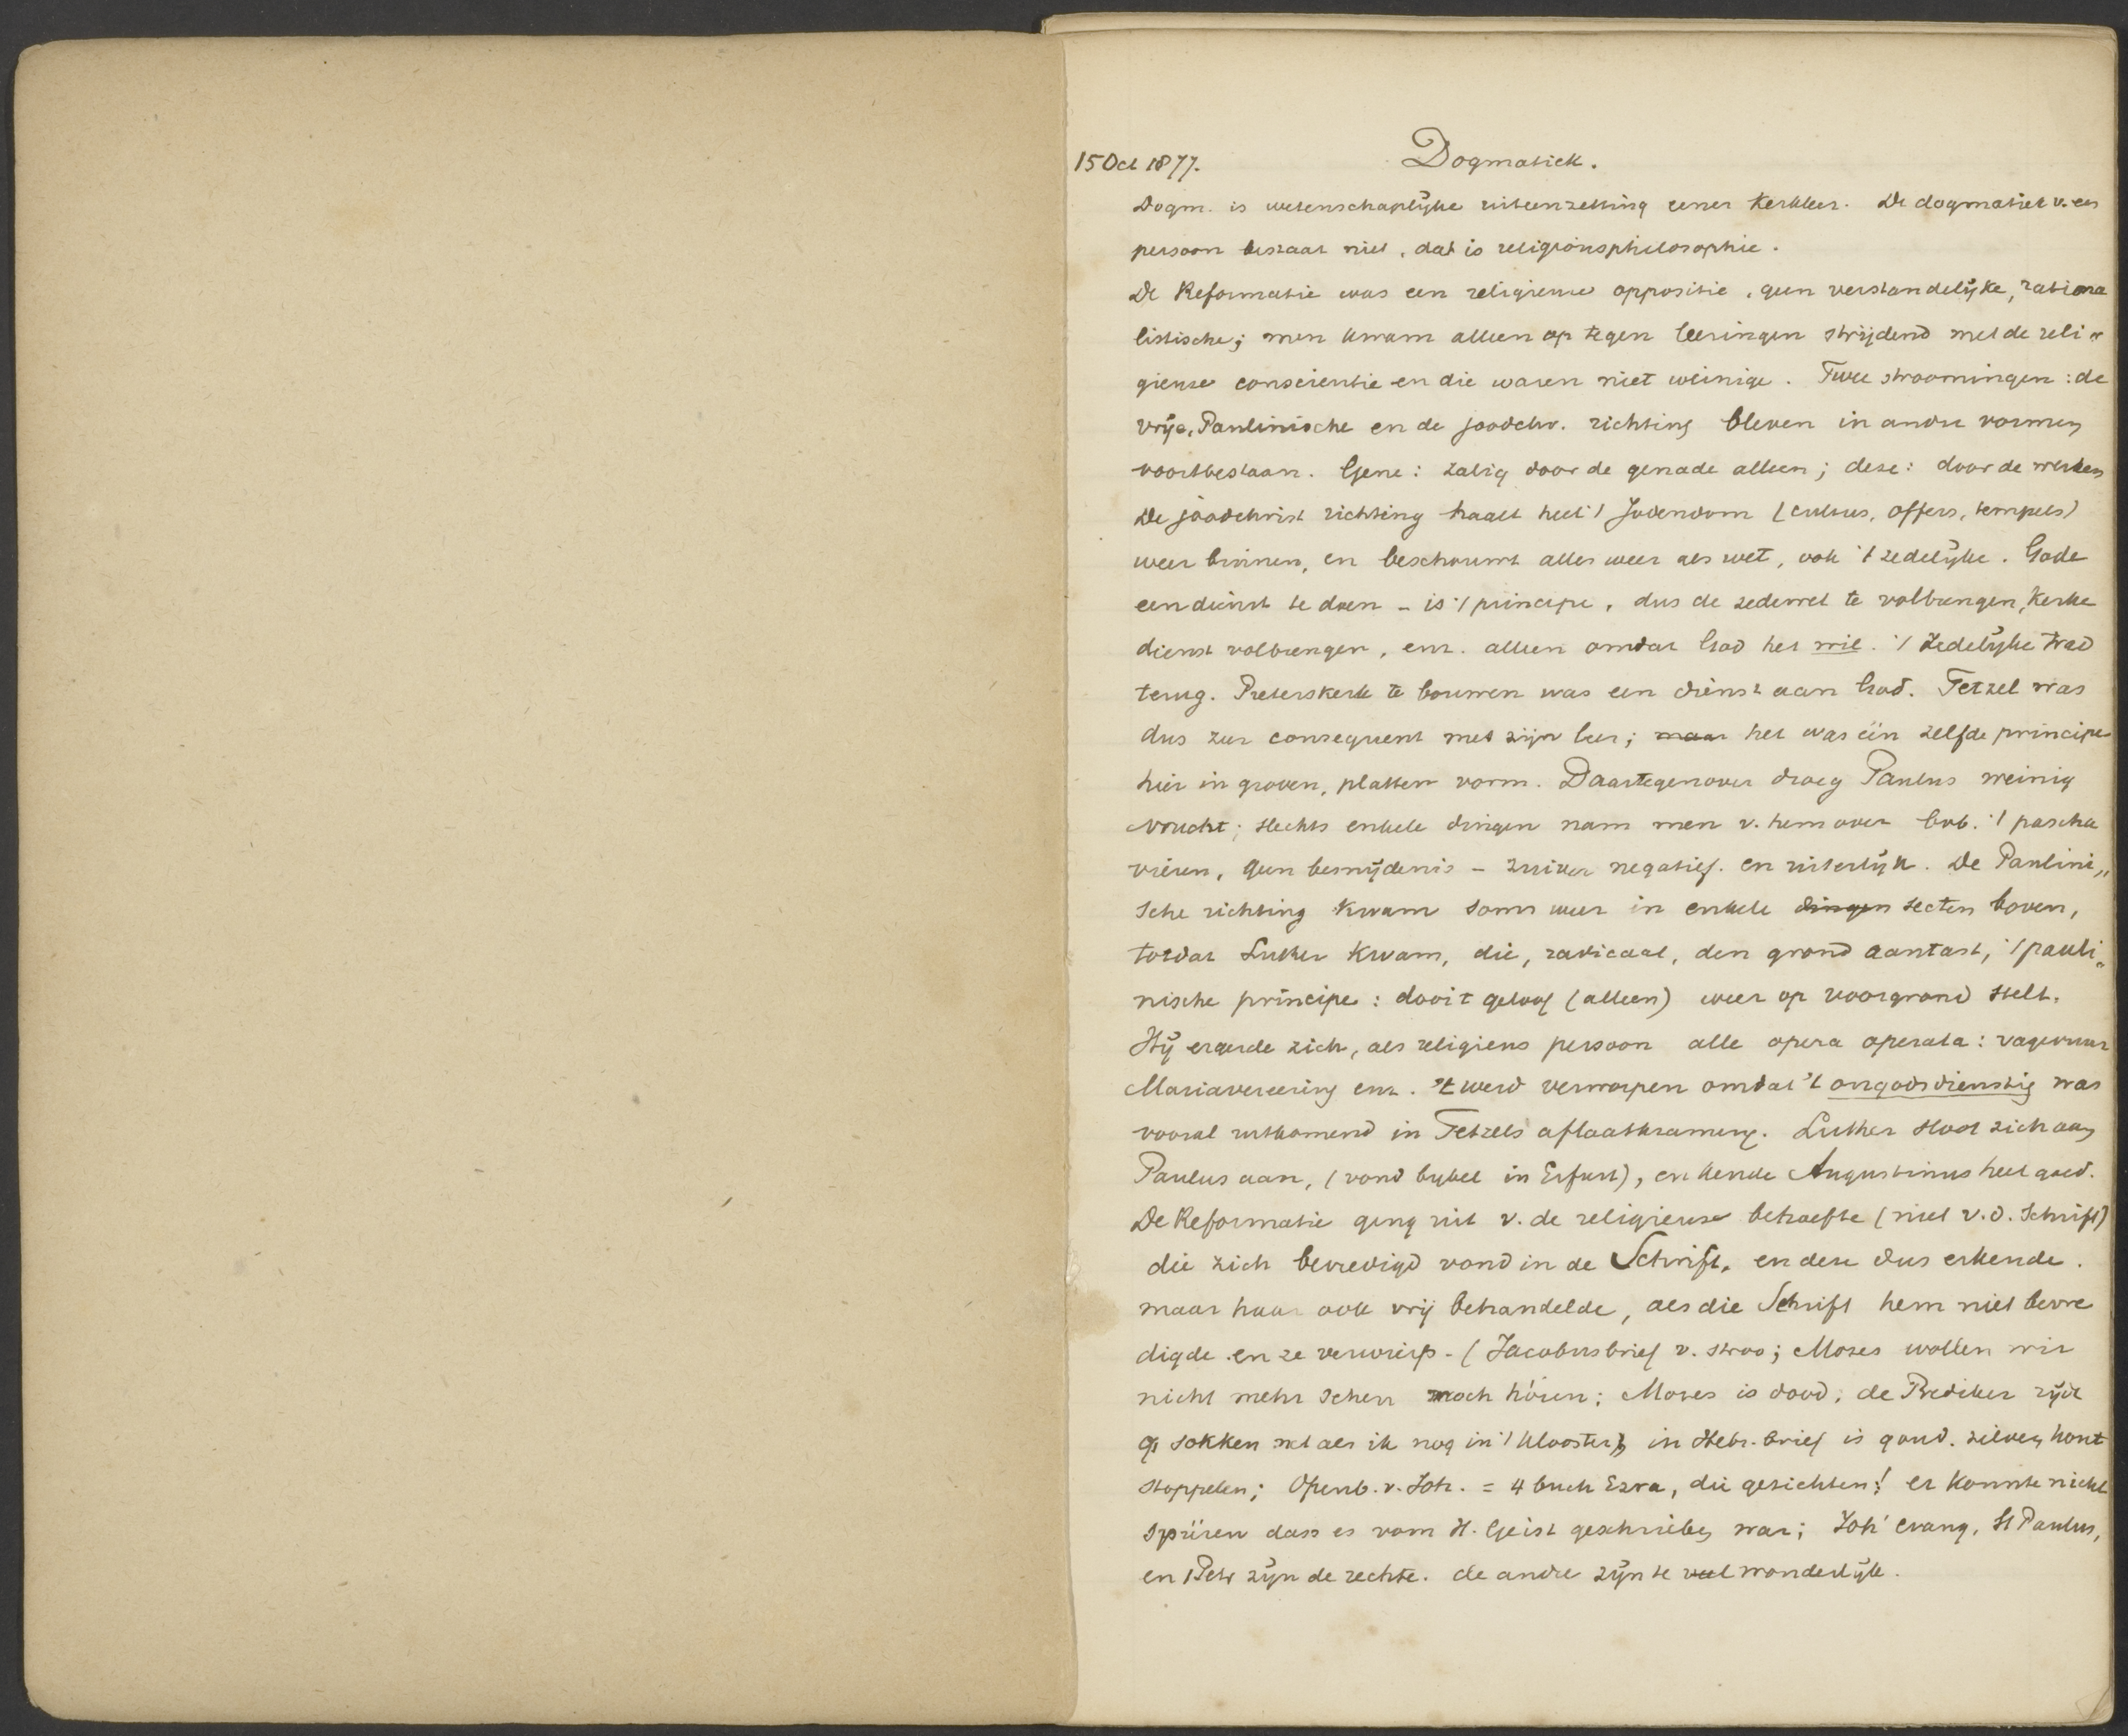 15 Oct 1877. Dogmatiek.
Dogm. is wetenschaplijke uiteenzetting eener Kerkleer. De dogmatiek v. een
persoon bestaat niet, dat is religionsphilosophie.
De Reformatie was een religieuse oppositie, geen verstandelijke, rationa
listische; men kwam alleen op tegen leeringen strijdend met de reli„
gieuse conscientie en die waren niet weinige. Twee stroomingen: de
vrije, Paulinische en de joodchr. richting bleven in andre vormen
voortbestaan. Gene: zalig door de genade alleen; deze: door de werken
De joodchrist richting haalt heel 't Jodendom (cultus, offers, tempels)
weer binnen, en beschouwt alles weer als wet, ook 't zedelijke. Gode
een dienst te doen - is 't principe, dus de zedewet te volbrengen, Kerke
dienst volbrengen, enz. alleen omdat God het wil. 't Zedelijke trad
terug. Pieterskerk te bouwen was een dienst aan God. Tetzel was
dus zeer consequent met zijn leer; maar het was één zelfde principe
hier in groven, platten vorm. Daartegenover droeg Paulus weinig
vrucht; slechts enkele dingen nam men v. hem over bvb. 't pascha
vieren, geen besnijdenis - zuiver negatief. en uiterlijk. De Paulini„
sche richting kwam soms weer in enkele dingen secten boven,
totdat Luther kwam, die, radicaal, den grond aantast, 't pauli„
nische principe: door 't geloof (alleen) weer op voorgrond stelt.
Hij ergerde zich, als religieus persoon alle opera operata: vagevuur
Mariavereering enz. 't werd verworpen omdat 't ongodsdienstig was
vooral uitkomend in Tetzels aflaatkramery. Luther sloot zich aan
Paulus aan, (vond bybel in Erfurt), en kende Augustinus heel goed.
De Reformatie ging uit v. de religieuse behoefte (niet v. d. Schrift)
die zich bevredigd vond in de Schrift, en deze dus erkende.
maar haar ook vrij behandelde, als die Schrift hem niet bevre
digde en ze verwierp - (Jacobusbrief v. stroo; Mozes wollen wir
nicht mehr sehen noch hören; Mozes is dood; de Prediker rijdt
op sokken net als ik nog in 't klooster; in Hebr. brief is goud. zilver, hout
stoppelen; Openb. v. Joh. = 4 buch Ezra, die gezichten! er konnte nicht
spüren dass es vom H. Geist geschrieben war; Joh' evang, St Paulus,
en 1 Petr zijn de rechte. de andre zijn te veel wonderlijk.